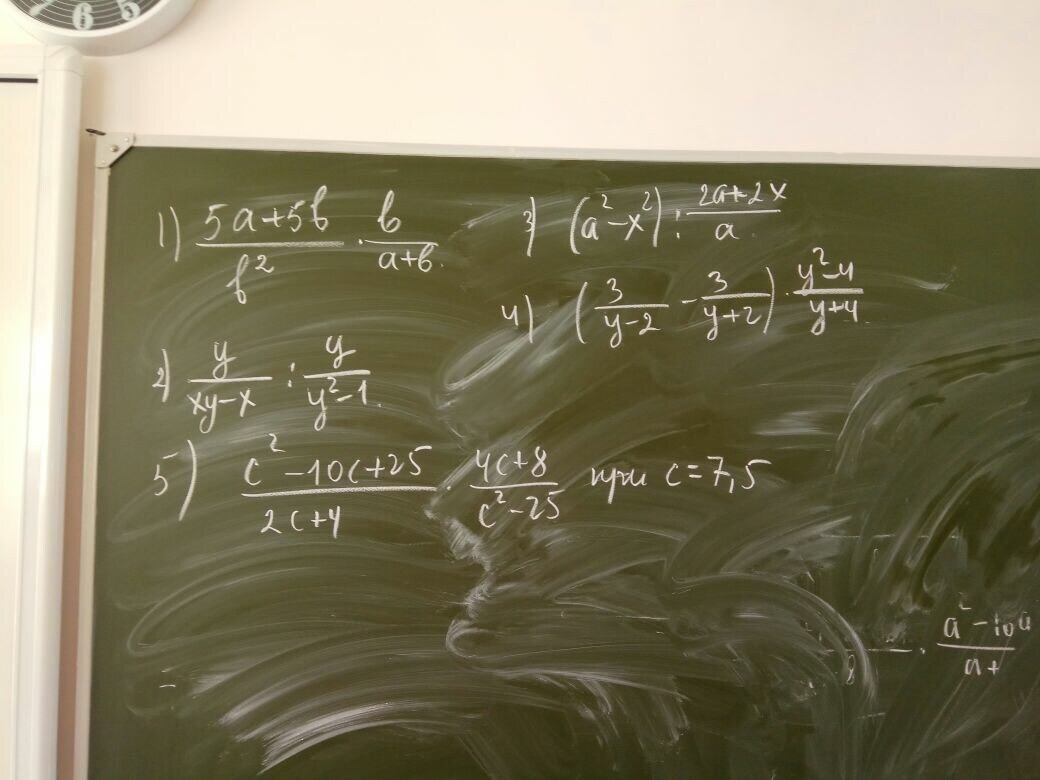 6 5
1) (5a+5b)/b² · b/(a+b)
3) (a²-x²) : (2a+2x)/a
4) (3/(y-2) - 3/(y+2)) · (y²-4)/(y+4)
2) y/(xy-x) : y/(y²-1)
5) (c²-10c+25)/(2c+4) · (4c+8)/(c²-25) при c=7,5
a²-10a
a+